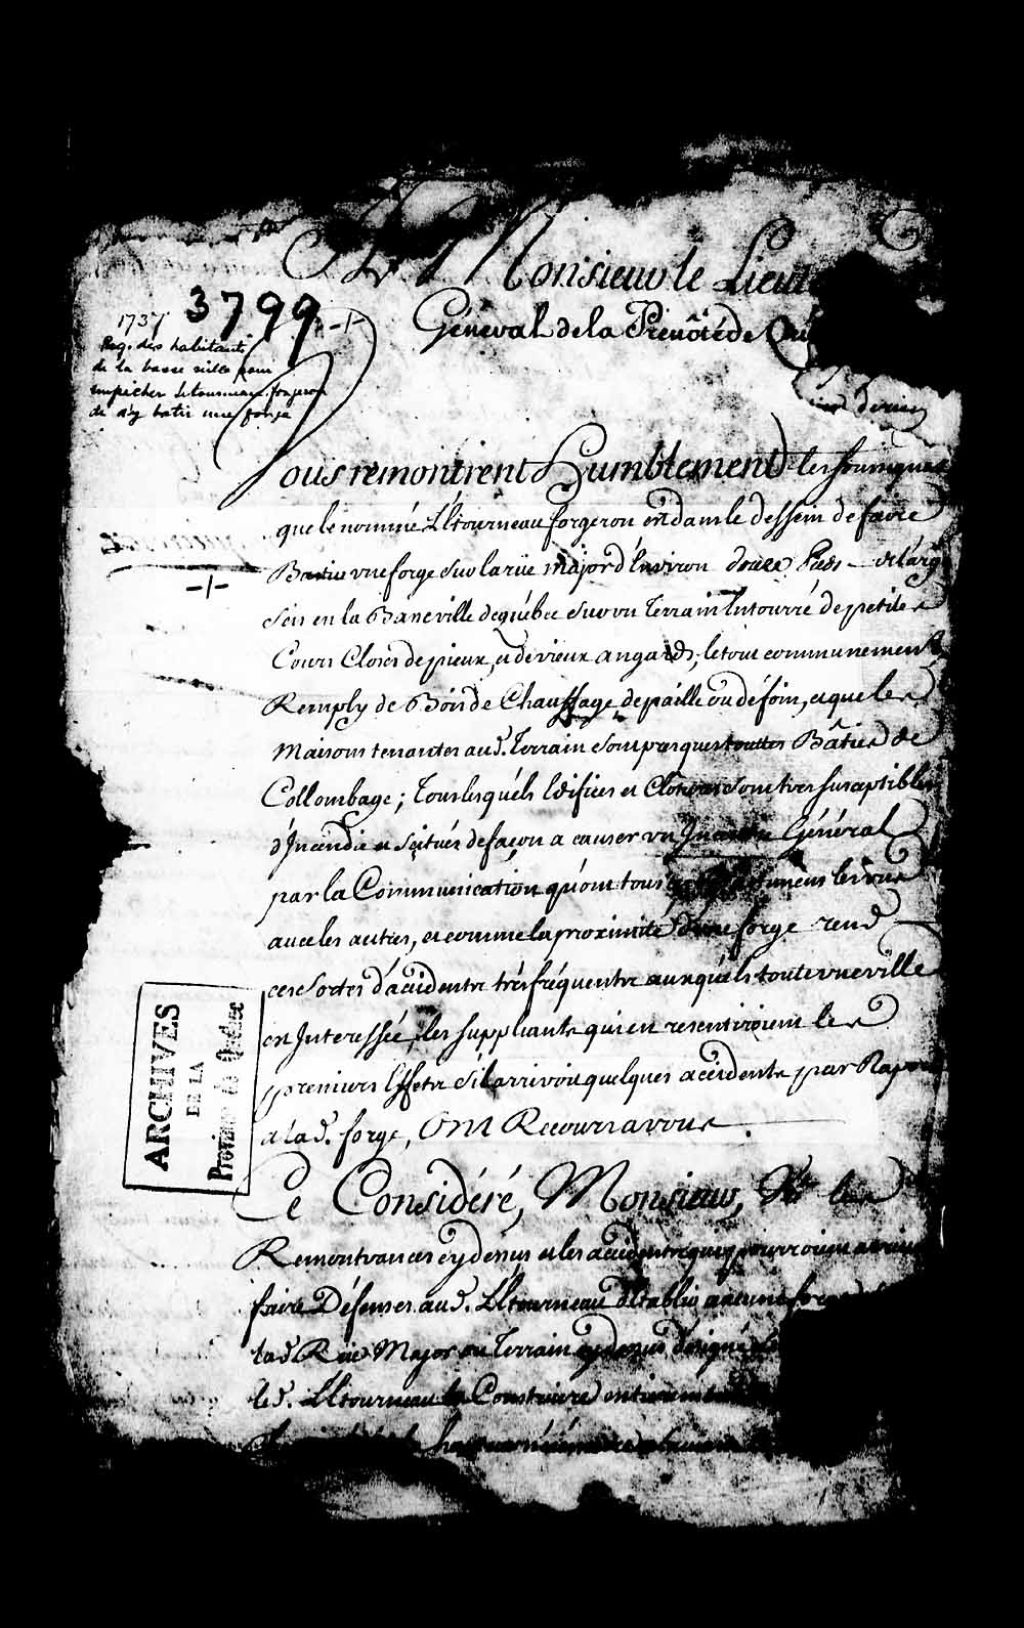 A Monsieur le Lieut
Général de la Prevôté de Qu
3799
1737
Req. des habitants
de la basse ville pour
empêcher Letourneau forgeron
de d'y batir une forge
-1-
Vous remontrent Humblement les soussignes
que le nommé Letourneau forgeron est dans le dessein de faire
Bastir une forge sur la rüe major d'Environ douze pieds de larg
seis en la Basseville de québec sur un Terrain Entourré de petites
Cours Closes de pieux, et de vieux angards, le tout communement
Remply de Bois de Chauffage, de paille ou de foin, et que les
Maisons tenantes aud. Terrain sont presques touttes Bâties de
Collombage; Tous lesquels Edifices et Clotures sont tres susceptibles
d'Incendie et scitués de façon a causer un Incendie Général
par la Communication qu'ont tous les uns
avec les autres, et comme la proximité d'une forge rend
ces sortes d'accidents très fréquents auxquels toute une ville
est Interessée, les suppliants qui en resentiroient les
premiers Effets s'il arrivoit quelques accidents par Rapport
a lad. forge, Ont Recours a vous.
Ce Considéré, Monsieur, Vû les
Remontrances cy dessus et les accidents qui pourroient arriver
faire Défenses aud. Letourneau d'Etablir aucune forge
lad. Rüe Major au Terrain cy dessus désigné
led. Letourneau la Construire entierement
ARCHIVES
DE LA
Province de Québec